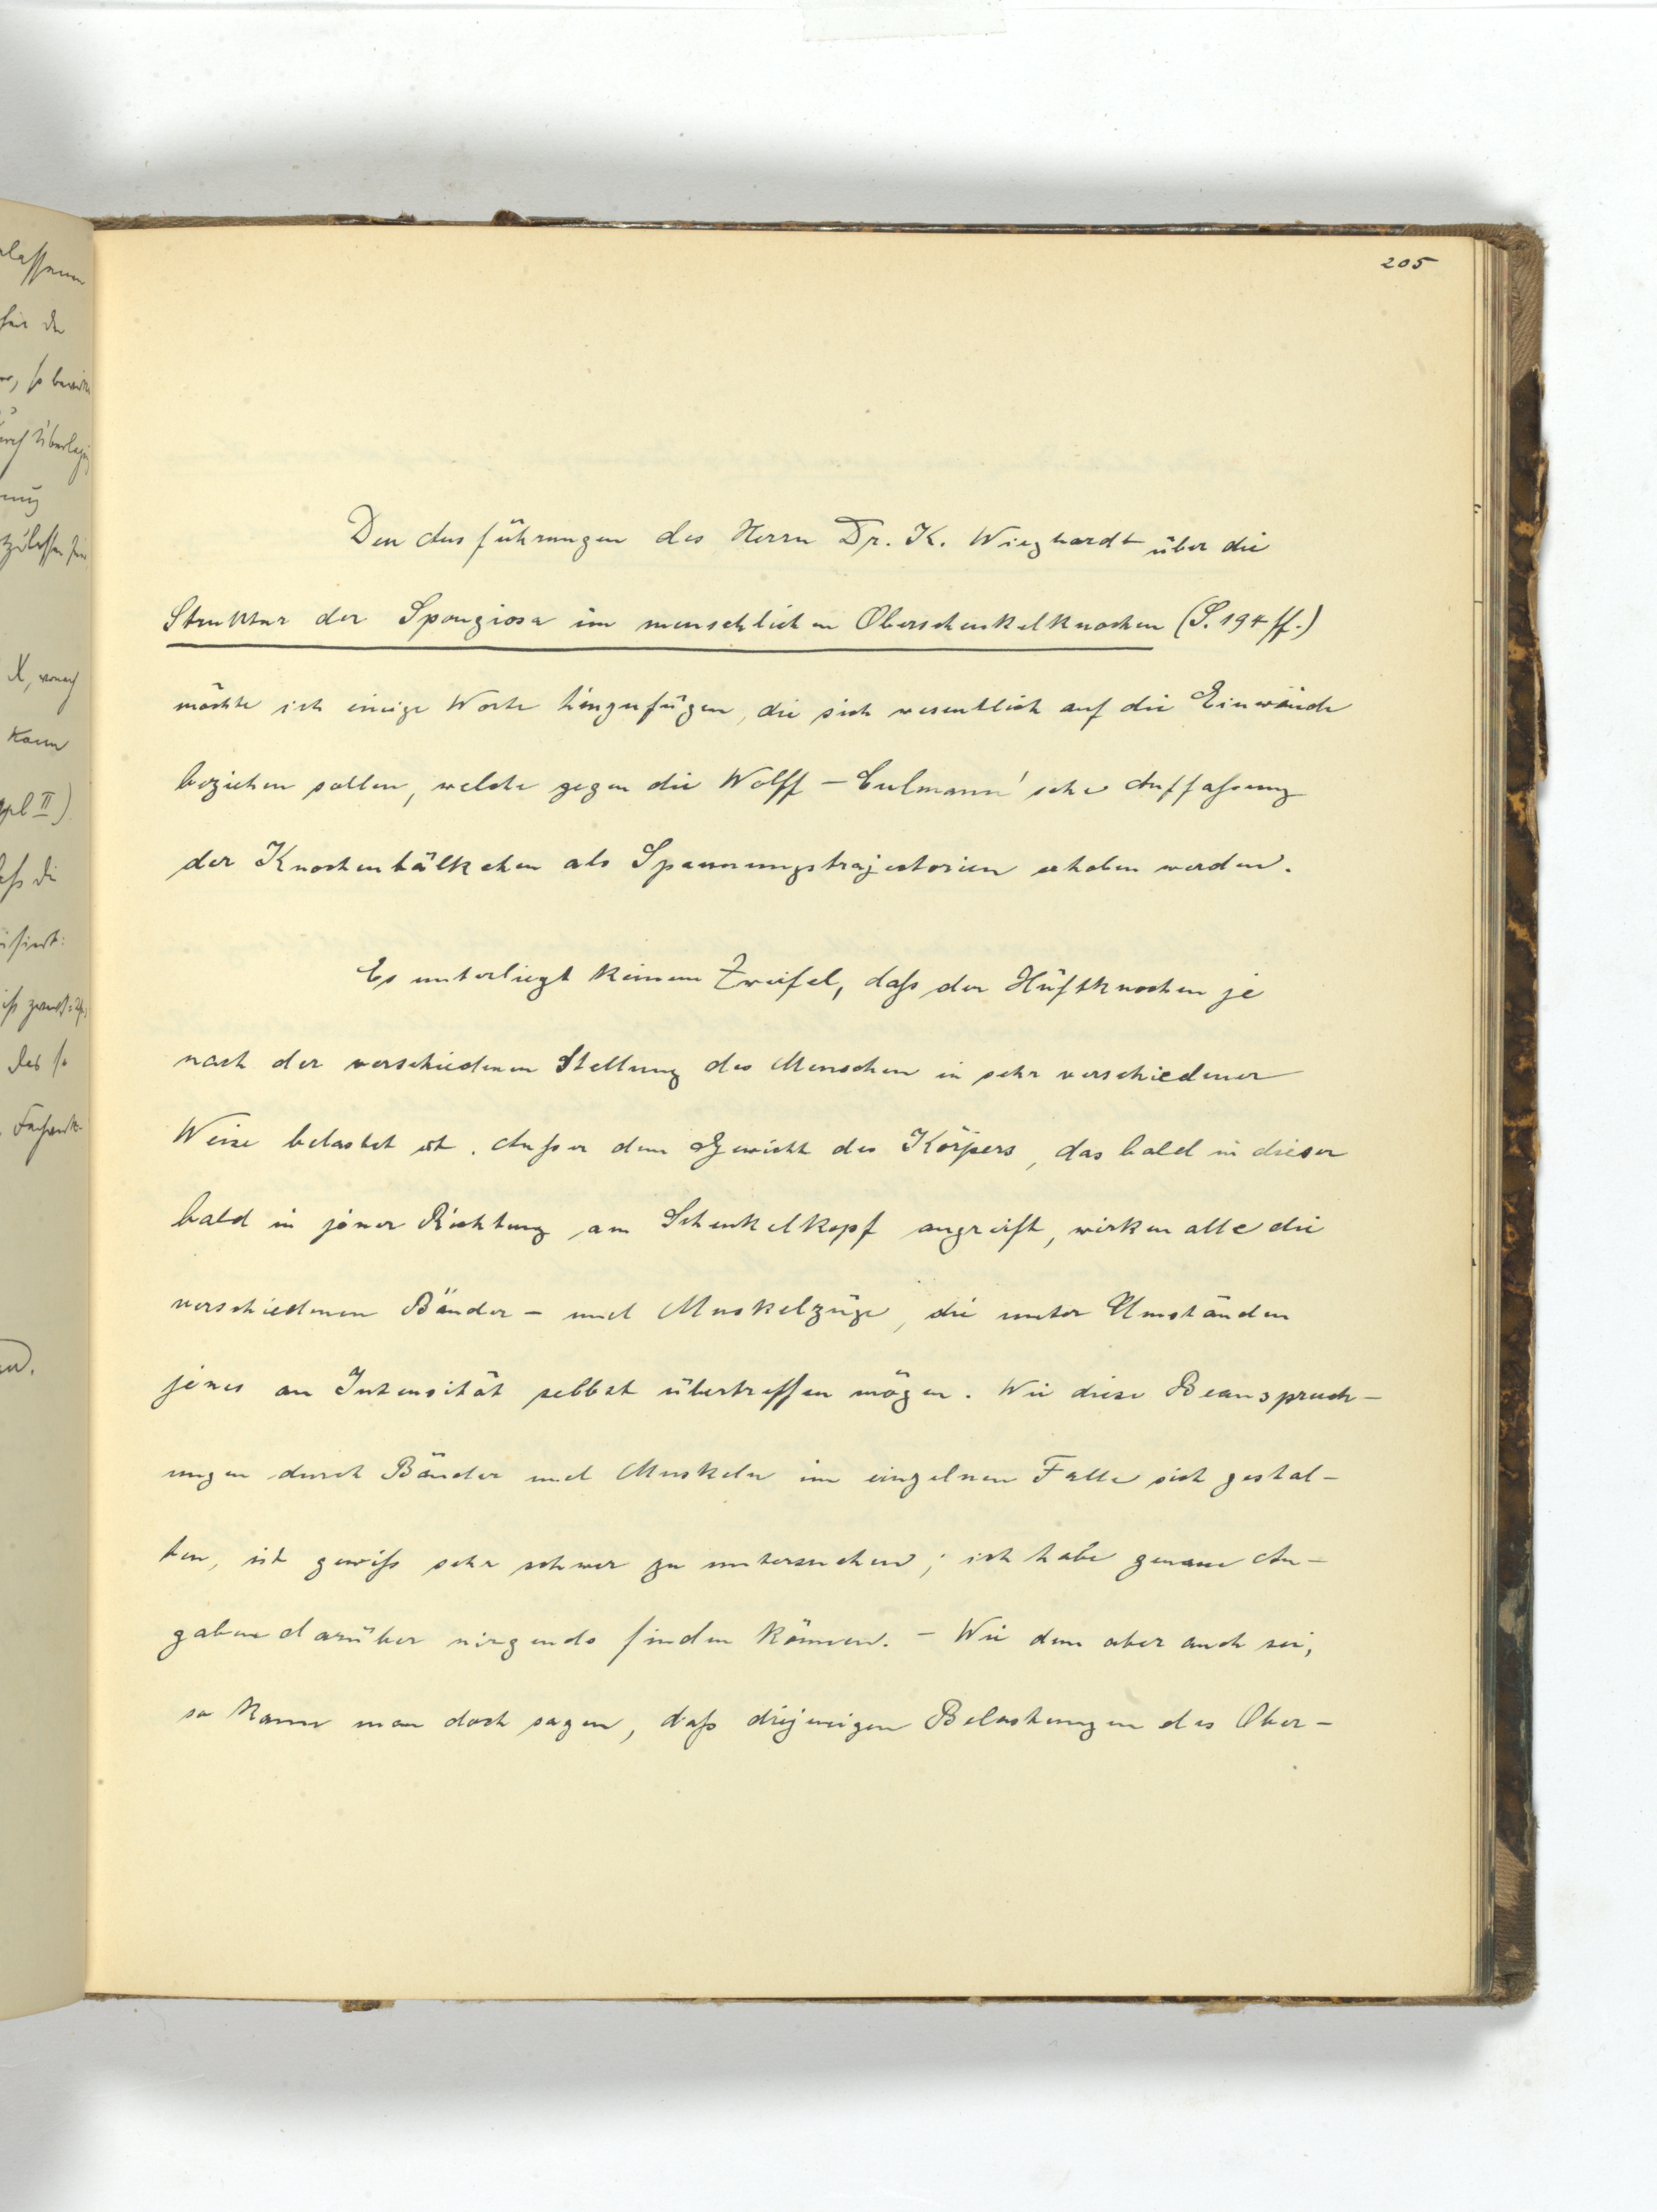 205
Den Ausführungen des Herrn Dr. K. Wieghardt über die
Struktur der Spongiosa im menschlichen Oberschenkelknochen (S. 194 ff.)
möchte ich einige Worte hinzufügen, die sich wesentlich auf die Einwände
beziehen sollen, welche gegen die Wolff-Culmann'sche Auffaßung
der Knochenbälkchen als Spannungstrajectorien erhoben werden.
Es unterliegt keinem Zweifel, daß der Hüftknochen je
nach der verschiedenen Stellung des Menschen in sehr verschiedener
Weise belastet ist. Außer dem Gewicht des Körpers, das bald in dieser
bald in jener Richtung am Schenkelkopf angreift, wirken alle die
verschiedenen Bänder- und Muskelzüge, die unter Umständen
jenes an Intensität selbst übertreffen mögen. Wie diese Beanspruch-
ungen durch Bänder und Muskeln im einzelnen Falle sich gestal-
ten, ist gewiß sehr schwer zu untersuchen; ich habe genaue An-
gaben darüber nirgends finden können. - Wie dem aber auch sei,
so kann man doch sagen, daß diejenigen Belastungen des Ober-
lassen
für die
X, wonach
kann
daß die
des so